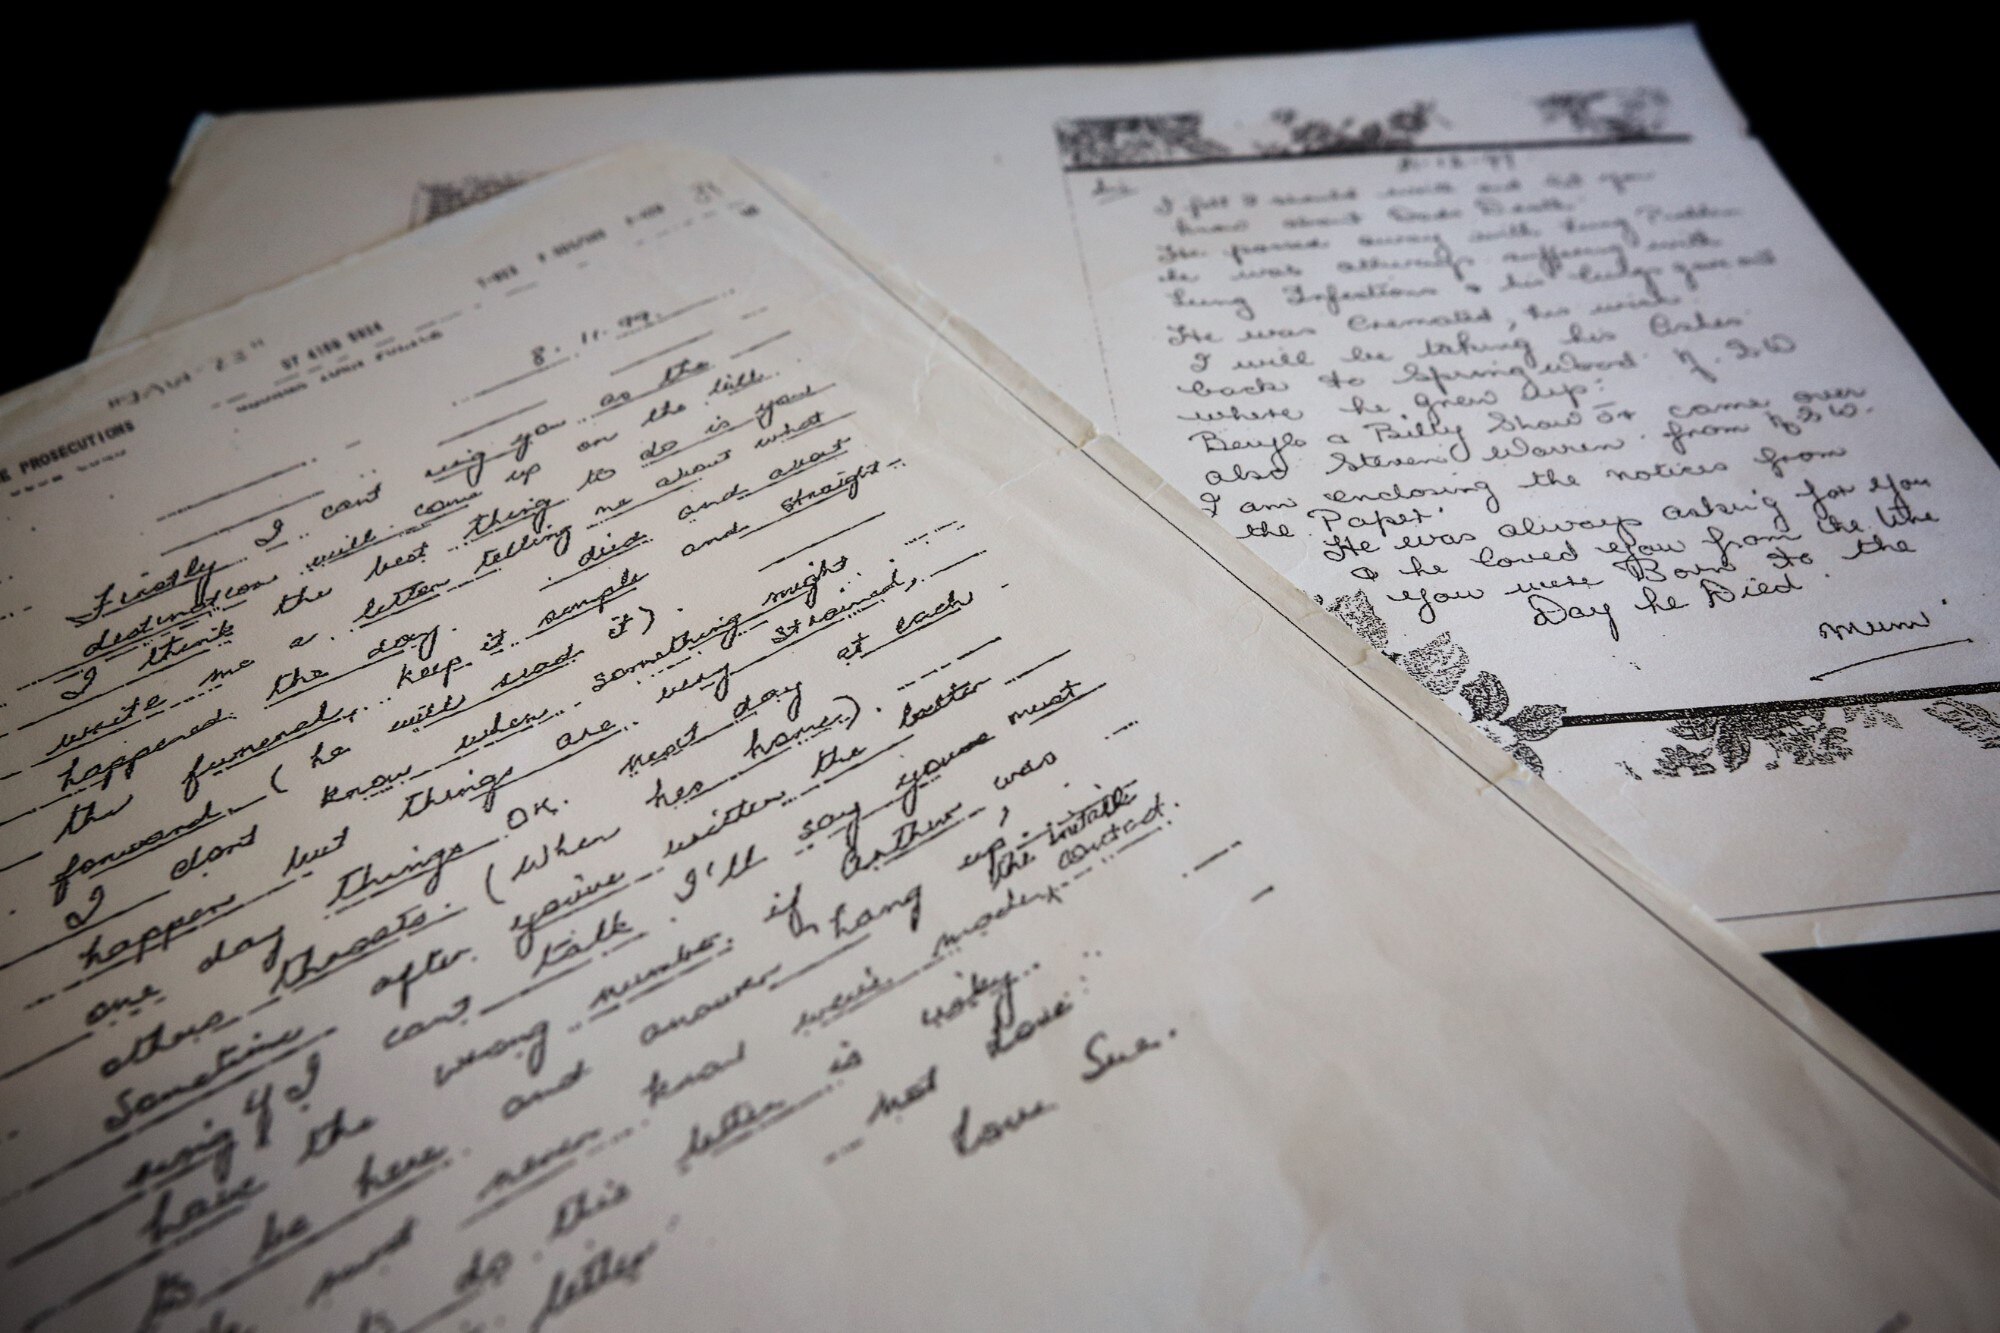 E PROSECUTIONS
8.11.99.
Firstly I can't ring you as the
destination will come up on the bill.
I think the best thing to do is you
write me a letter telling me about what
happened the day died and about
the funeral, keep it simple and straight-
forward (he will read it).
I dont know when something might
happen but things are very strained,
one day things OK. next day at each
others throats. (When hes home).
Sometime after youive written the letter
ring if I can't talk I'll say youve must
have the wrong number. if Arthur was
to be here and answer hang up,
must never know weve made the initial contact.
do this letter is risky.
letter not Love
Love Sue.
I felt I should write and let you
know about Dads Death.
He passed away with Lung Problem
he was allways suffering with
Lung Infections & his lungs gave out
He was Cremated, his wish.
I will be taking his Ashes
back to Springwood N.S.W
where he grew up.
Beryl & Billy Shaw came over
also Steven Warren from N.S.W.
I am enclosing the notices from
the Paper.
He was always asking for you
& he loved you from the time
you were Born to the
Day he Died.
Mum